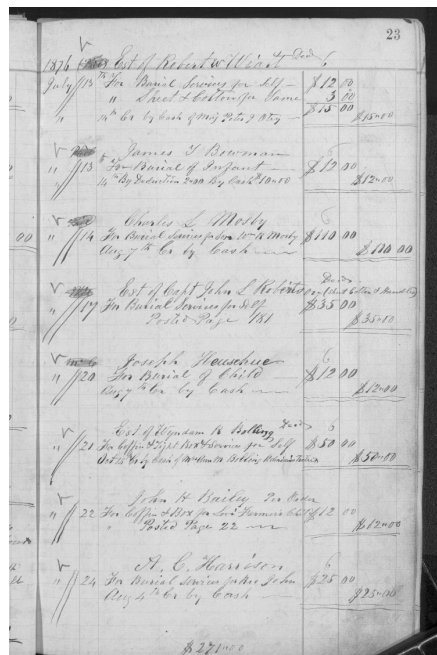 23
1876 Est of Robert W Wiatt Decd
July 13th For Burial Services for Self — $12 00
" Sheet & Cotton for Same 3 00
$15 00
Cr by Cash of Maj Peter J Otey — $15"00
James Y Bowman
" 13 For Burial of Infant — $12 00
14th By Deduction 2"00 By Cash 10"00 $12"00
Charles L Mosby
" 14 For Burial Services for Son Wm H Mosby $110 00
Aug 7th Cr by Cash $110 00
Est of Capt John L Roberts Decd
" 17 For Burial Services for Self $35 00
Posted Page 181 $35"00
Joseph
" 20 For Burial of Child $12 00
Aug 7th Cr by Cash $12"00
Est of Wyndham R Bolling Decd
" 21 For Coffin & Tight Box & Services for Self $50 00
Cr by Cash of Bolling $50"00
John H Bailey Per Order
" 22 For Coffin & Box for Child $12 00
" Posted Page 22 $12"00
A. C. Harrison
" 24 For Burial Services for John $25 00
Aug 4th Cr by Cash $25"00
$271"00